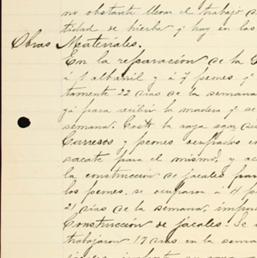 no obstante llevar el trabajo
tidad de hierba y hoy en las
Obras Materiales.
En la reparación de la
1 albañil y á 7 peones y
tamente 22 dias de la semana
já para recibir la madera y se
semana. Costó la raya
Carreros y peones ocupados en
sacate para el mismo, y
la construcción de jacales para
los peones, se ocuparon á 4
21 dias de la semana,
Construcción de jacales. Se
trabajaron 17 dias en la semana